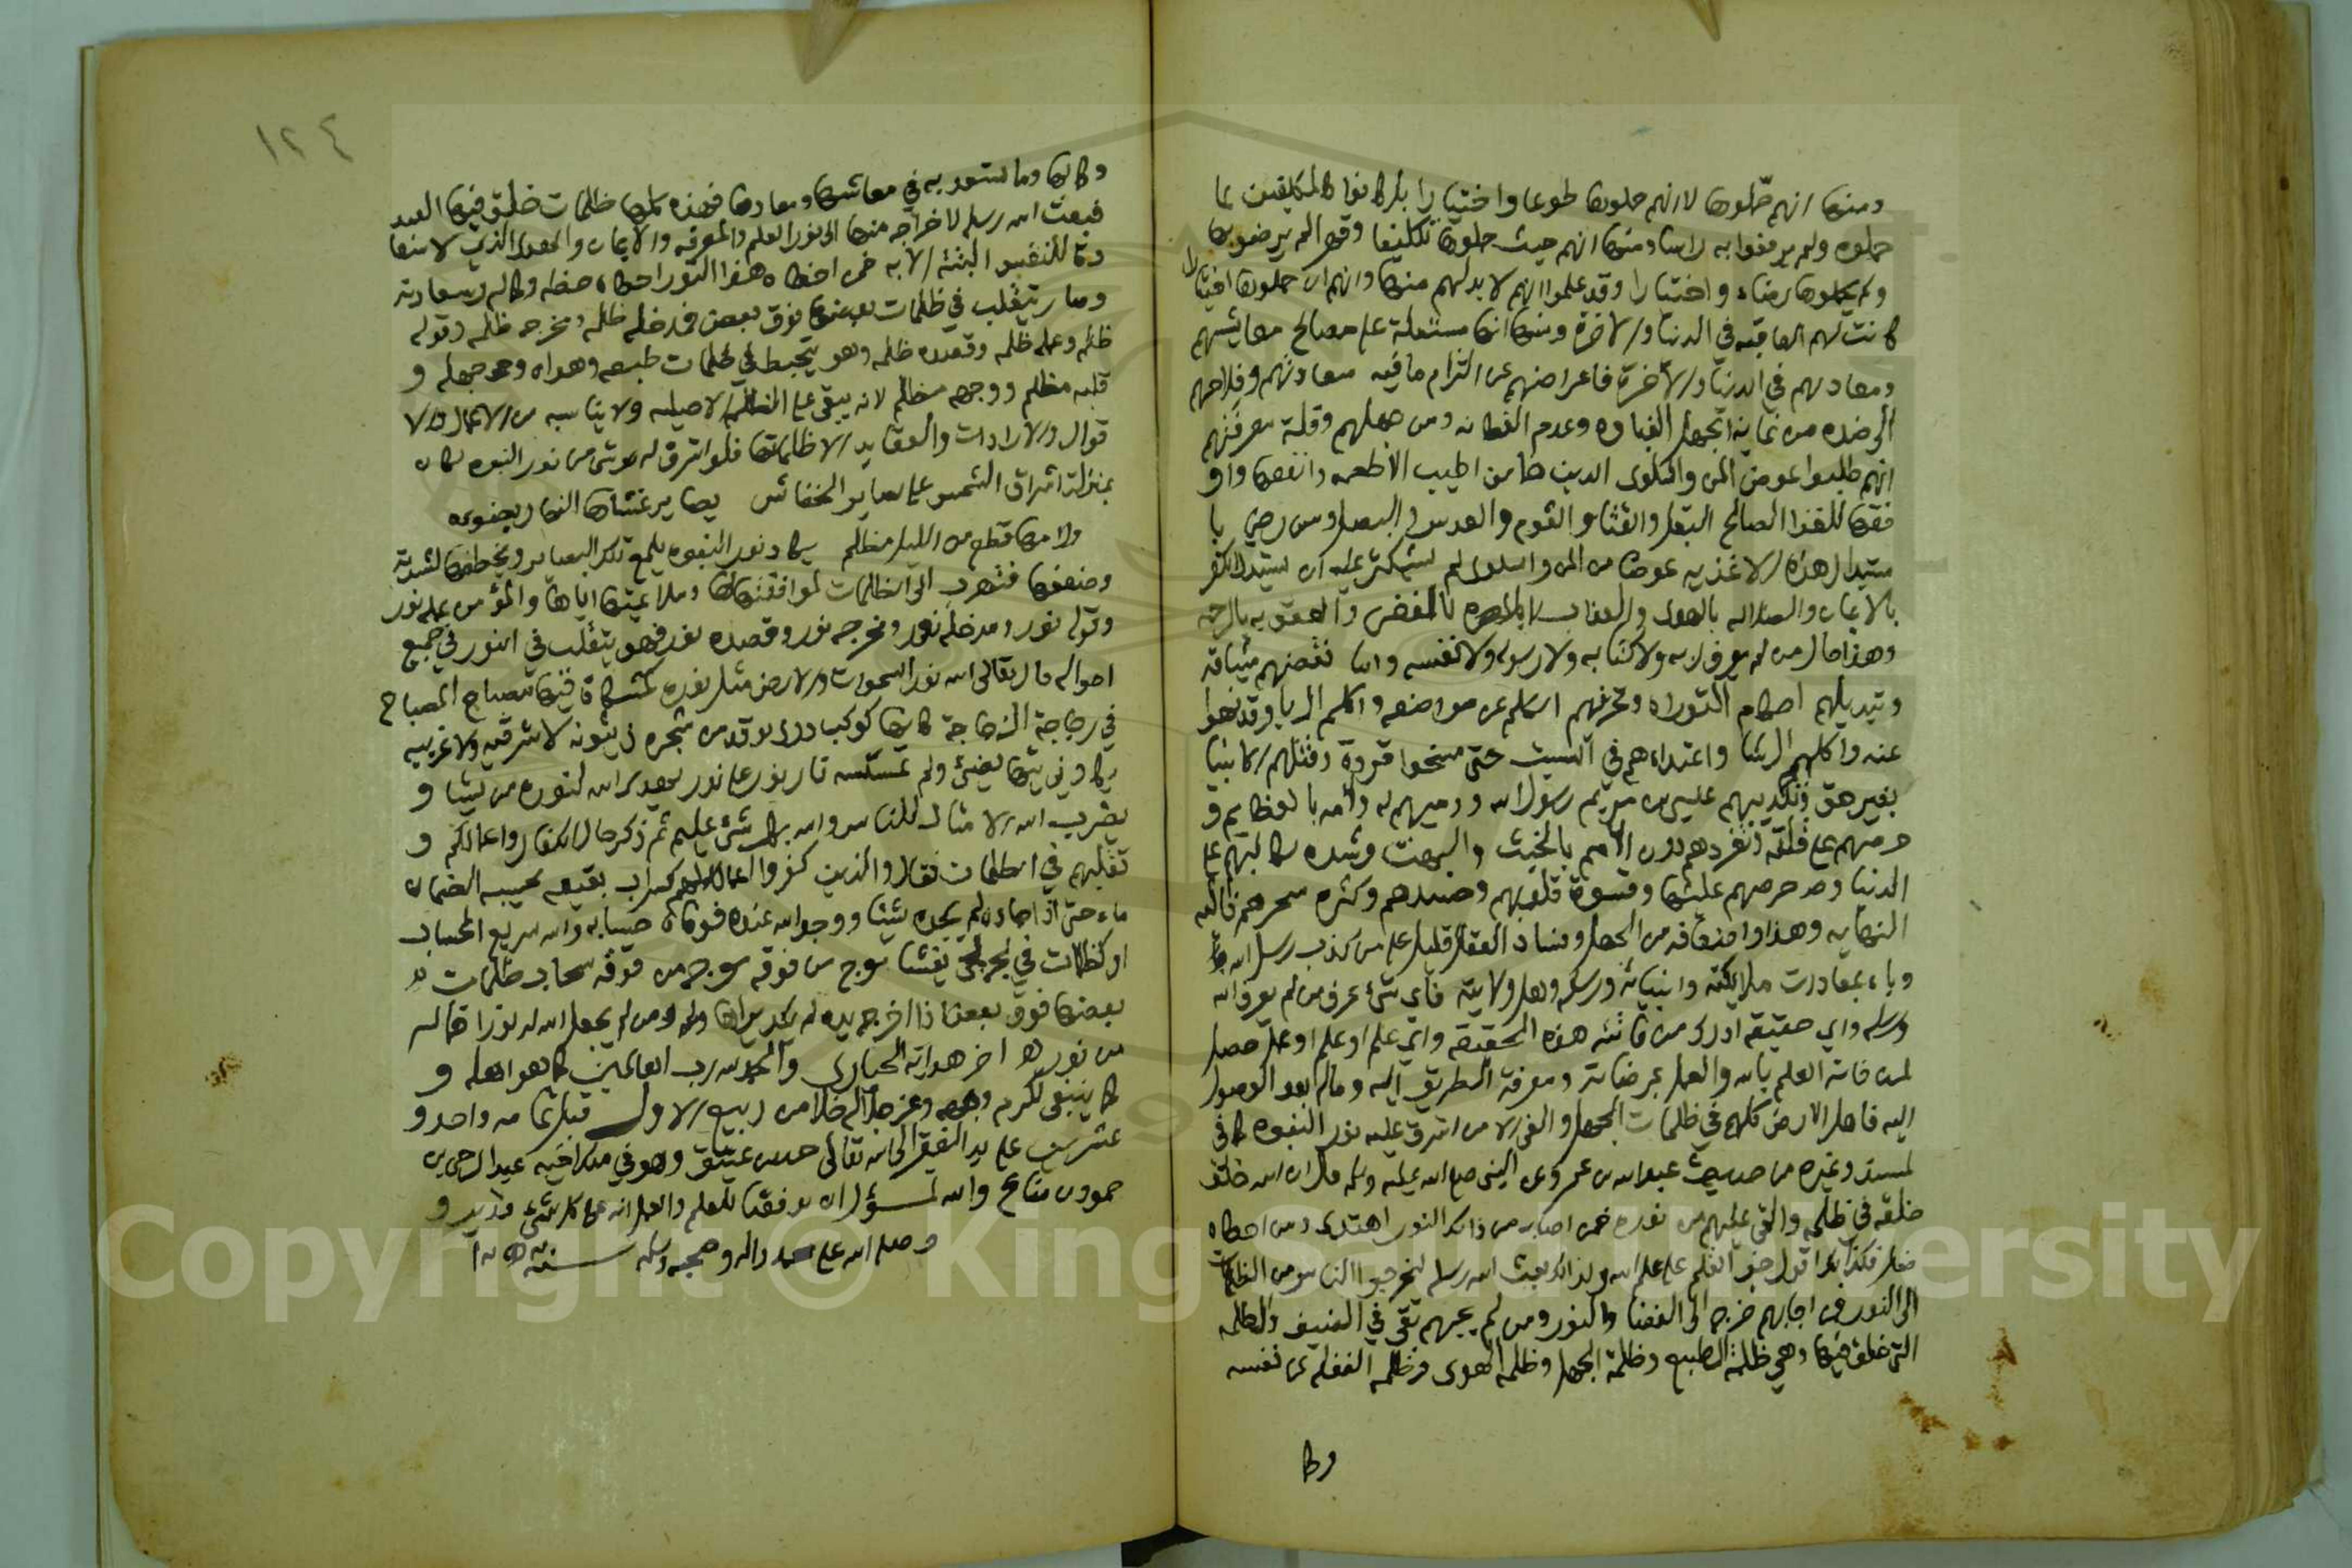 ومنها انهم حمّلوها لا انهم حملوها طوعا واختيارا بل كانوا كالمكلفين لما
حملوه ولم يرفعوا به راسا ومنها انهم حيث حملوها تكليفا وقهرا لم يرضوا بها
ولم يحملوها رضاء واختيارا وقد علموا انهم لا بد لهم منها وانهم ان حملوها اختيارا
كانت لهم العاقبه في الدنيا والاخرة ومنها انها مشتملة على مصالح معايشهم
ومعادهم في الدنيا والآخرة فاعراضهم عن التزام ما فيه سعادتهم وفلاحهم
الى ضده من غاية الجهل والغباوه وعدم الفطانه ومن جهلهم وقلة معرفتهم
انهم طلبوا عوض المن والسلوى الذين هما من اطيب الاطعمه وانفعها واو
فقها للغذا الصالح البقل والقثا والثوم والعدس والبصل ومن رضي با
ستبدال هذه الاغذيه عوضا من المن والسلوى لم يستكثر عليه ان يستبدل الكفر
بالايمان والضلاله بالهدى والعذاب بالمغفره والغضب والعقوبه بالرحمه
وهذا حال من لم يعرف ربه ولا كتابه ولا رسوله ولا نفسه واما نقضهم ميثاقه
وتبديلهم احكام التوراه وتحريفهم الكلم عن مواضعه واكلهم الربا وقد نهوا
عنه واكلهم الرشا واعتداءهم في السبت حتى مسخوا قردة وقتلهم الانبيا
بغير حق وتكذيبهم عليسى بن مريم رسول الله ورميهم له ولامه بالعظايم و
حرصهم على قتله وتفردهم دون الامم بالخبث والبهت وشده تكالبهم على
الدنيا وحرصهم عليها وقسوة قلوبهم وحسدهم وكثره سحرهم فاليه
النهايه وهذا واضعافه من الجهل وفساد العقل قليل على من كذب رسل الله
وباء بمعادات ملايكته وانبيائه ورسله واهل ولايته فاي شئ عرف من لم يعرف الله
ورسله واي حقيقه ادرك من فاتته هذه الحقيقه واي علم او عمل حصل
لمن فاته العلم بالله والعمل بمرضاته ومعرفة الطريق اليه وماله بعد الوصول
اليه فاهل الارض كلهم في ظلمات الجهل والغي الا من اشرق عليه نور النبوه كما في
المسند وغيره من حديث عبد الله بن عمرو عن النبي صلى الله عليه وسلم قال ان الله خلق
خلقه في ظلمه والقى عليهم من نوره فمن اصابه من ذلك النور اهتدى ومن اخطاه
ضل فلذلك اقول جف القلم على علم الله ولذلك بعث الله رسله ليخرجوا الناس من الظلمات
الى النور فمن اجابهم خرج الى الفضا والنور ومن لم يجبهم بقي في الضيق والظلمه
التي خلق فيها وهي ظلمة الطبع وظلمة الجهل وظلمة الهوى وظلمه الغفله عن نفسه
وكما
١٢٤
وكمالها وما تسعد به في معاشها ومعادها فهذه كلها ظلمات خلق فيها العبد
فبعث الله رسله لاخراجه منها الى نور العلم والمعرفه والايمان والهدى الذي لا سعا
دة للنفس البتة الا به فمن اخطاه هذا النور اخطاه حظه وكماله وسعادته
وصار يتقلب في ظلمات بعضها فوق بعض فمدخله ظلمه ومخرجه ظلمه وقوله
ظلمه وعمله ظلمه وقصده ظلمه وهو يتخبط في ظلمات طبعه وهواه وجهله و
قلبه مظلم ووجهه مظلم لانه يبقى على الظلمه الاصليه ولا يناسبه من الاعمال والا
قوال والارادات والعقايد الا ظلماتها فلو اشرق له شئ من نور النبوه لكان
بمنزلة اشراق الشمس على بصاير الخفاش بصاير غشاها النهار بضوءه
ولاءمها قطع من الليل مظلم يكاد نور النبوه يلمع تلك البصاير ويخطفها لشدته
وضعفها فتهرب الى الظلمات لموافقتها لها وملاءمتها اياها والمؤمن عمله نور
وقوله نور ومدخله نور ومخرجه نور وقصده نور فهو يتقلب في النور في جميع
احواله قال تعالى الله نور السموات والارض مثل نوره كمشكاة فيها مصباح المصباح
في زجاجة الزجاجة كانها كوكب دري يوقد من شجره زيتونه لا شرقيه ولا غربيه
يكاد زيتها يضيئ ولو لم تمسسه نار نور على نور يهدى الله لنوره من يشا و
يضرب الله الامثال للناس والله بكل شئ عليم ثم ذكر حال الكفار واعمالهم و
تقلبهم في الظلمات فقال والذين كفروا اعمالهم كسراب بقيعه يحسبه الضمان
ماء حتى اذا جاءه لم يجده شيئا ووجد الله عنده فوفاه حسابه والله سريع الحساب
او كظلمات في بحر لجي يغشاه موج من فوقه موج من فوقه سحاب ظلمات
بعضها فوق بعض اذا اخرج يده لم يكد يراها ومن لم يجعل الله له نورا فما له
من نور اخر هداية الحيارى والحمد لله رب العالمين كما هو اهله و
كما ينبغي لكرم وجهه وعز جلاله خلا من ربيع الاول قبل تمامه واحد و
عشرين على يد الفقير الى الله تعالى حمد بن عتيق وهو في ملك اخيه عبد الرحمن بن
حمود بن مناع والله المسؤل ان يوفقنا للعلم والعمل انه على كل شئ قدير و
وصلى الله على محمد واله وصحبه وسلم سنة
Copyright © King Saud University